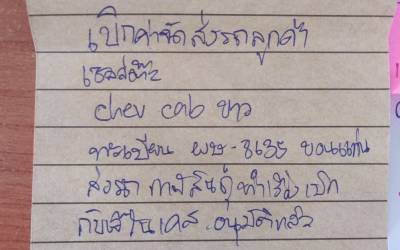 เบิกค่าจัดส่งรถลูกค้า
เซลล์ต๊ะ
chev cab ขาว
ทะเบียน ผษ-8635 ขอนแก่น
ส่งรถ กาฬสินธุ์ เบิก
กับ ใน เคส อนุมัติแล้ว